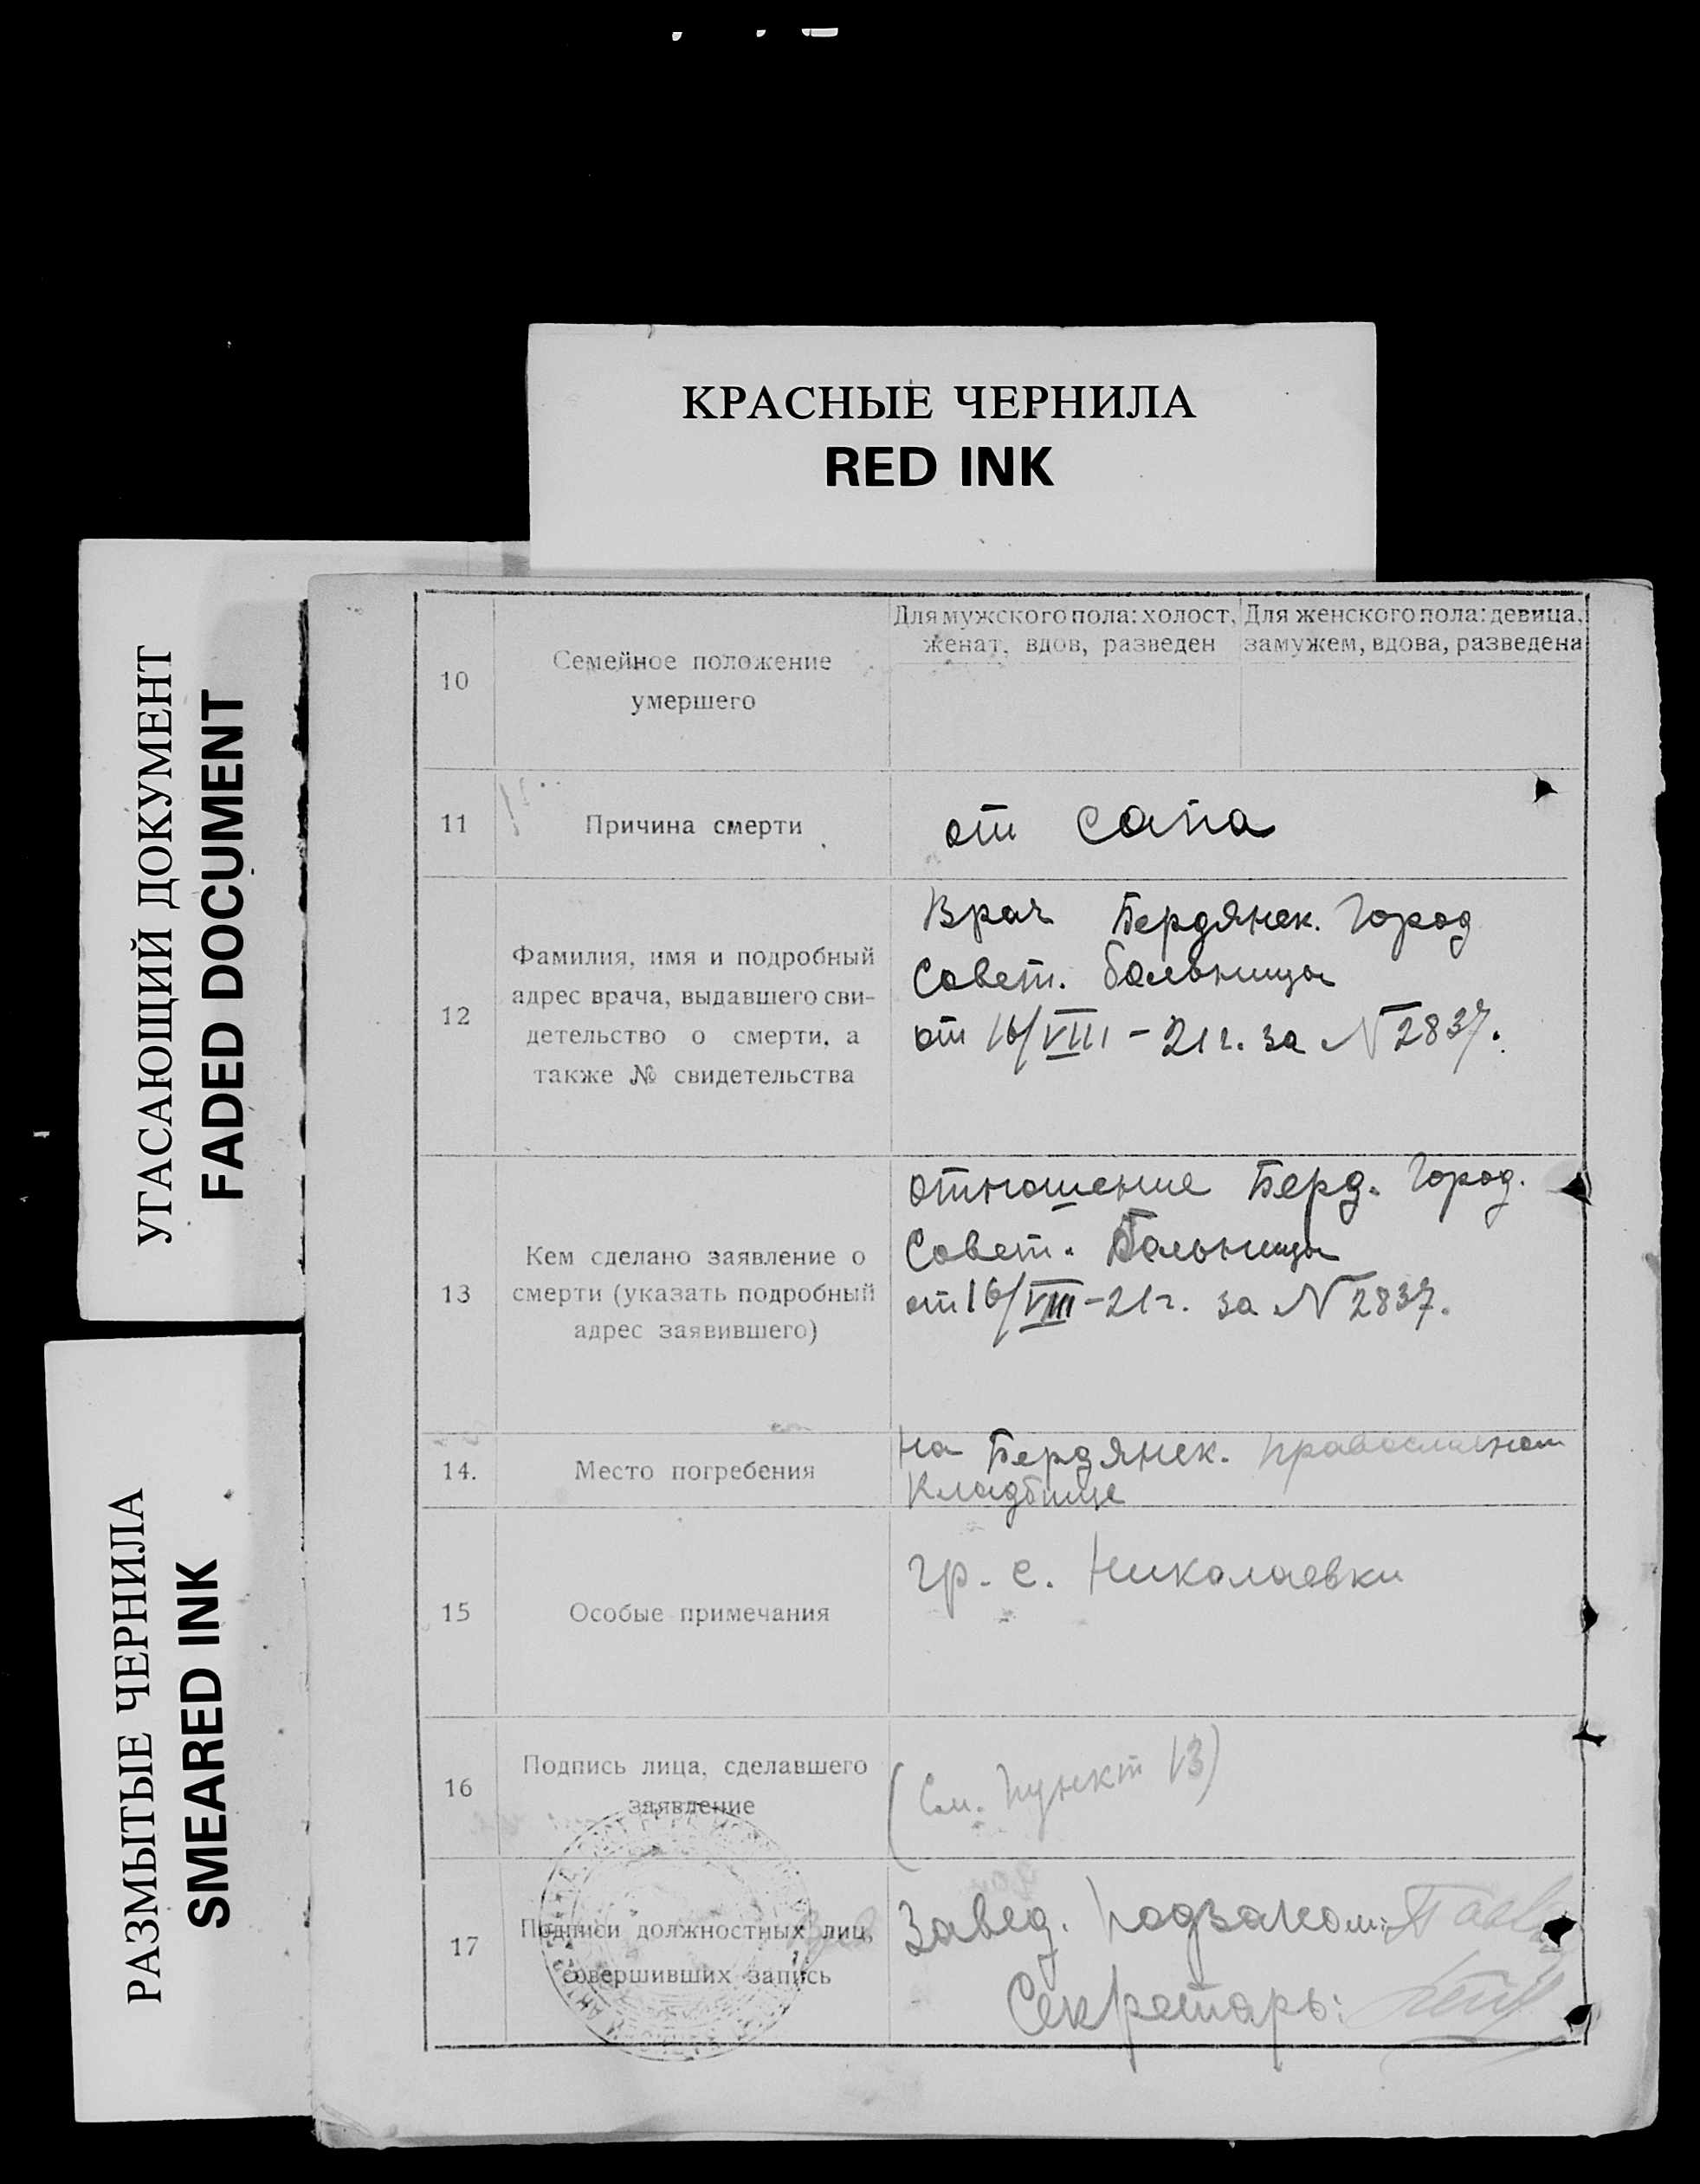 КРАСНЫЕ ЧЕРНИЛА
RED INK
УГАСАЮЩИЙ ДОКУМЕНТ
FADED DOCUMENT
РАЗМЫТЫЕ ЧЕРНИЛА
SMEARED INK
10
Семейное положение
умершего
Для мужского пола: холост,
женат, вдов, разведен
Для женского пола: девица,
замужем, вдова, разведена
11
Причина смерти
от сапа
12
Фамилия, имя и подробный
адрес врача, выдавшего сви-
детельство о смерти, а
также № свидетельства
Врач Бердянск. Город
Совет. больницы
от 16/VIII-21 г. за N 2837.
13
Кем сделано заявление о
смерти (указать подробный
адрес заявившего)
отношение Берд. Город.
Совет. Больницы
от 16/VIII-21 г. за N 2837.
14.
Место погребения
на Бердянск. православном
кладбище
15
Особые примечания
гр. с. Николаевки
16
Подпись лица, сделавшего
заявление
(См. пункт 13)
17
Подписи должностных лиц,
совершивших запись
Завед. подзагсом:
Секретарь: